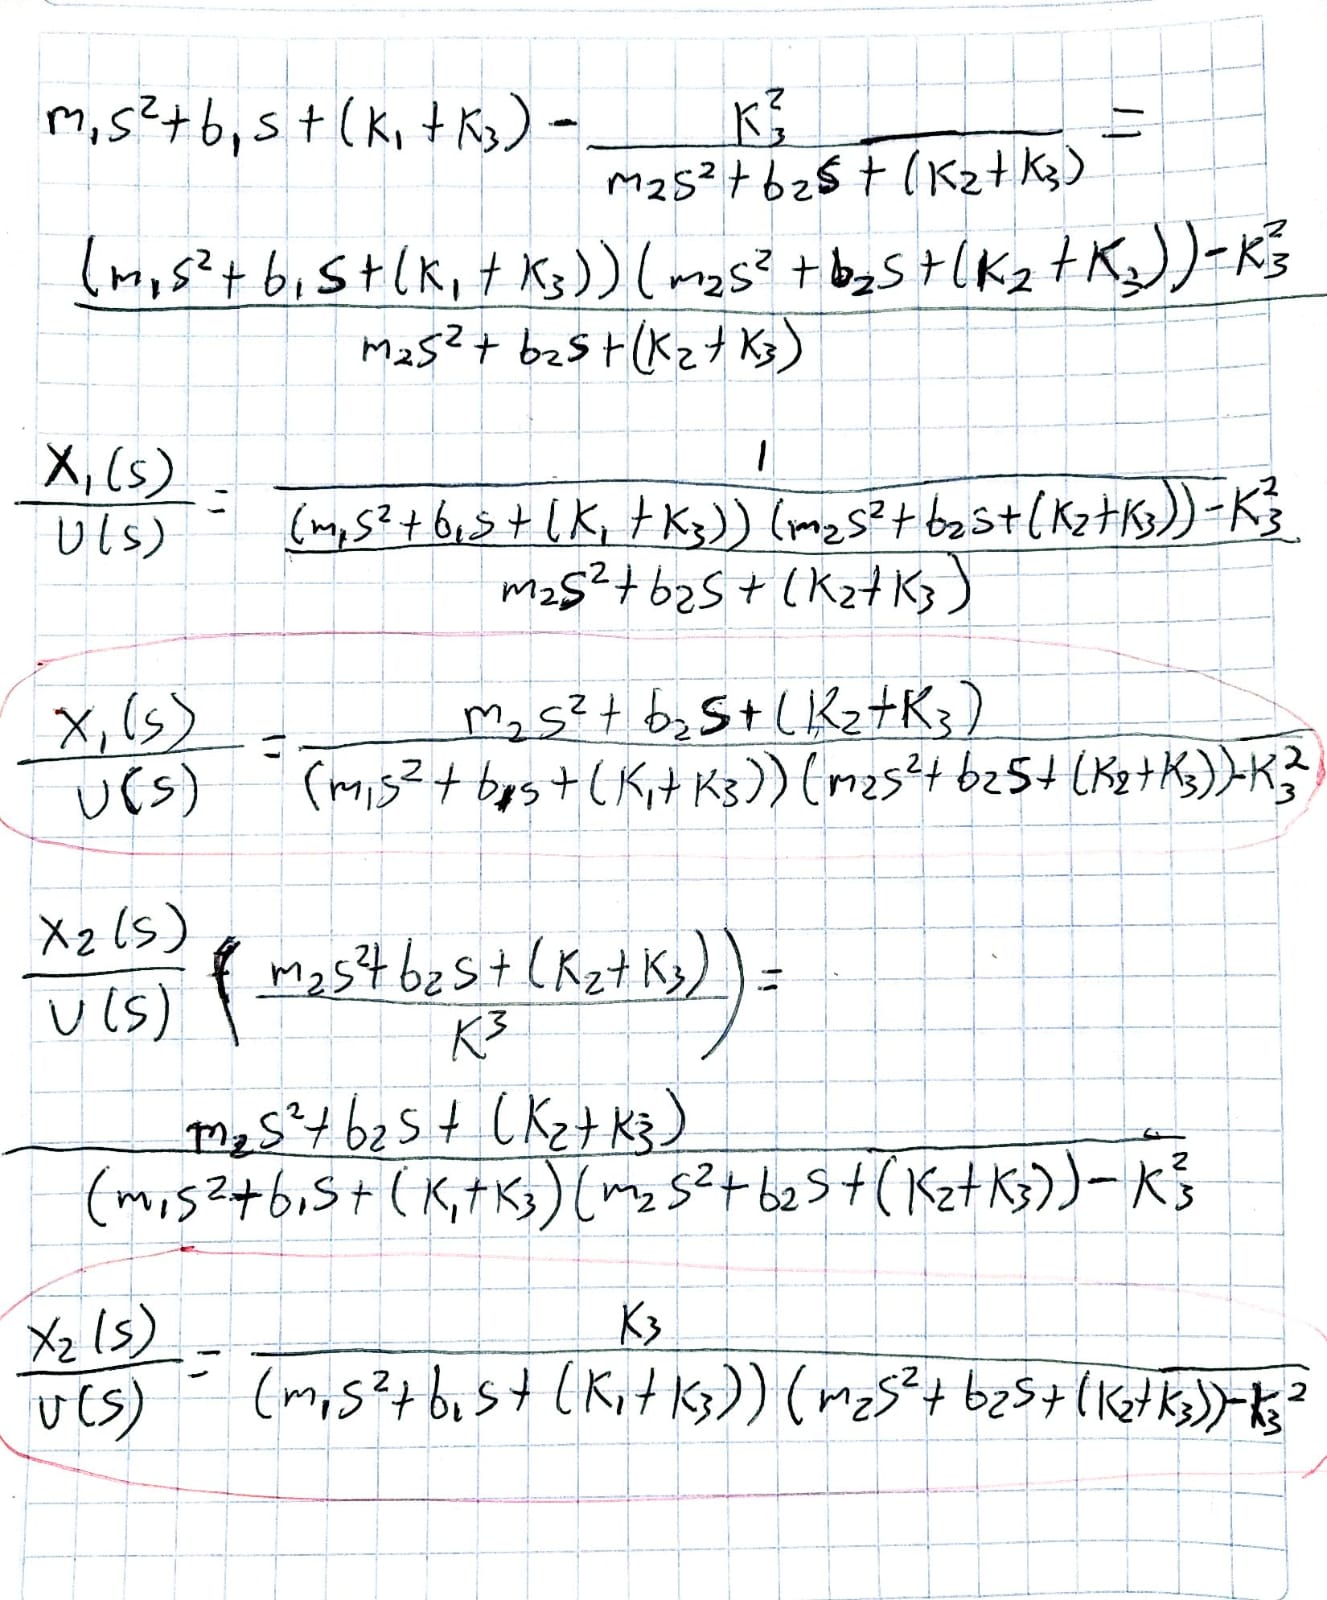 m₁s²+b₁s+(K₁+K₃)- K₃² / m₂s²+b₂s+(K₂+K₃) =
(m₁s²+b₁s+(K₁+K₃))(m₂s²+b₂s+(K₂+K₃))-K₃²
m₂s²+b₂s+(K₂+K₃)
X₁(s) / U(s) = 1
(m₁s²+b₁s+(K₁+K₃))(m₂s²+b₂s+(K₂+K₃))-K₃²
m₂s²+b₂s+(K₂+K₃)
X₁(s) / U(s) = m₂s²+b₂s+(K₂+K₃)
(m₁s²+b₁s+(K₁+K₃))(m₂s²+b₂s+(K₂+K₃))-K₃²
X₂(s) / U(s) (m₂s²+b₂s+(K₂+K₃) / K³) =
m₂s²+b₂s+(K₂+K₃)
(m₁s²+b₁s+(K₁+K₃)(m₂s²+b₂s+(K₂+K₃))-K₃²
X₂(s) / U(s) = K₃
(m₁s²+b₁s+(K₁+K₃))(m₂s²+b₂s+(K₂+K₃))-K₃²